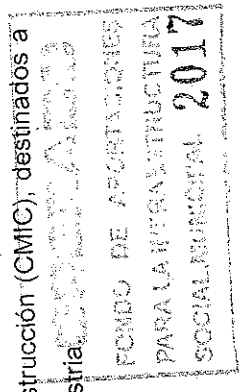 strucción (CMIC), destinados a
stria.
FONDO DE APORTACIONES
PARA LA INFRAESTRUCTURA
SOCIAL MUNICIPAL 2017